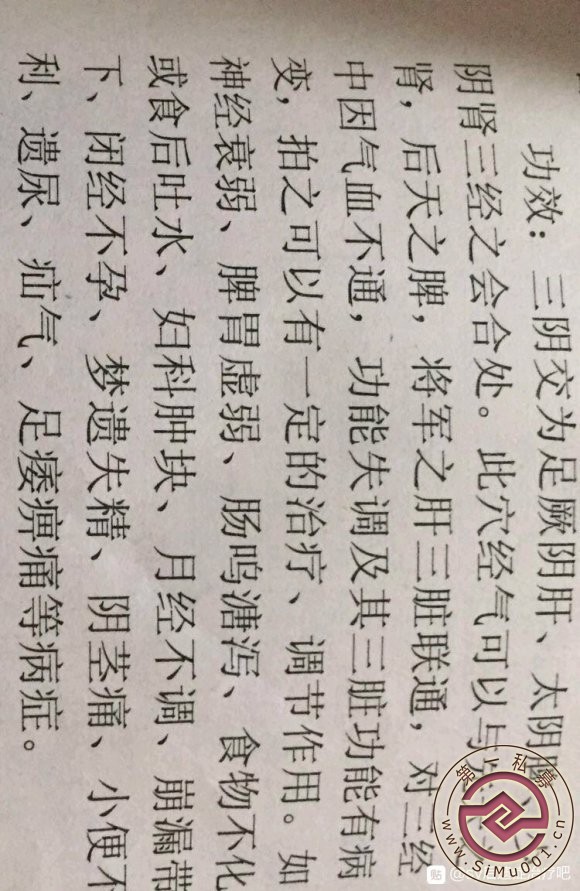 功效：三阴交为足厥阴肝、太阴
阴肾三经之会合处。此穴经气可以与
肾，后天之脾，将军之肝三脏联通，对三经
中因气血不通，功能失调及其三脏功能有病
变，拍之可以有一定的治疗、调节作用。如
神经衰弱、脾胃虚弱、肠鸣溏泻、食物不化
或食后吐水、妇科肿块、月经不调、崩漏带
下、闭经不孕、梦遗失精、阴茎痛、小便不
利、遗尿、疝气、足痿痹痛等病症。
第一私募
www.SiMu001.cn
贴 疗吧